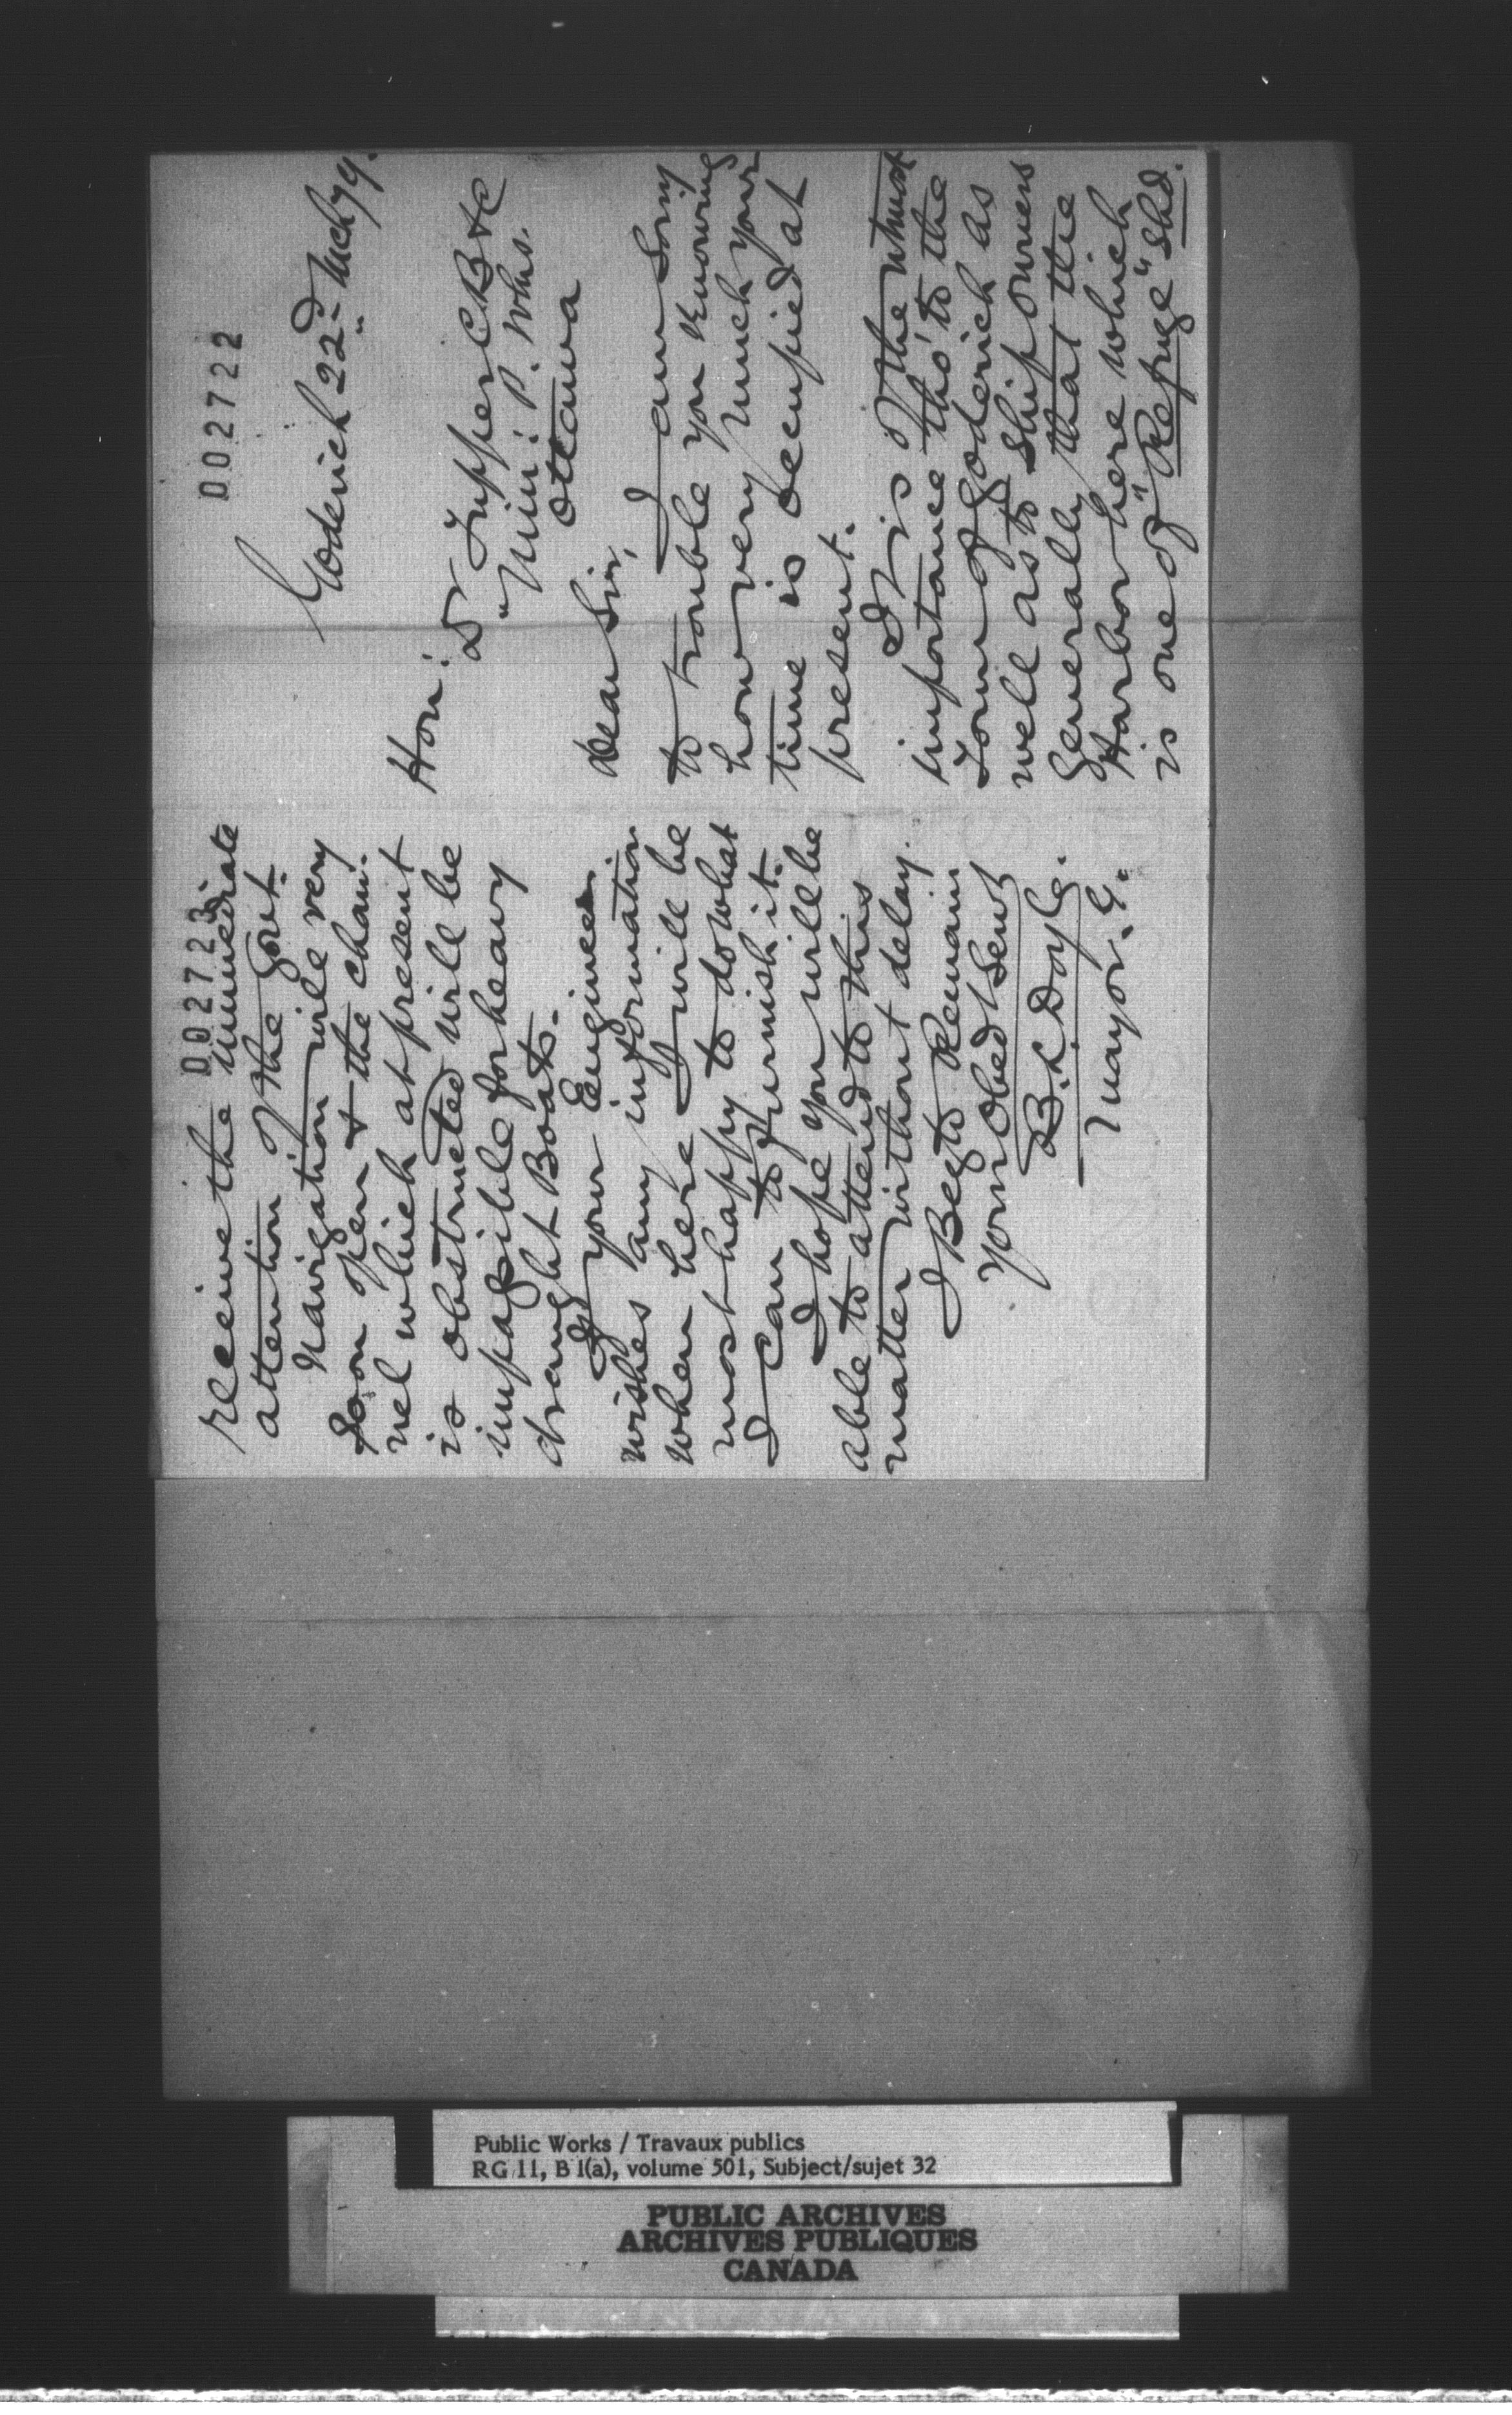 002722
Goderich 22nd Mch 79.
Hon:
Dr Tupper C.B &c
"Min: P. Wks.
Ottawa
Dear Sir,
I am sorry
to trouble you knowing
how very much your
time is occupied at
present.
It is of the utmost
importance tho' to the
Town of Goderich as
well as to Ship owners
generally that the
Harbor here which
is one of "Refuge" Shd.
002723
receive the immediate
attention of the Govt.
Navigation will very
soon open & the chan-
nel which at present
is obstructed will be
impassible for heavy
draught Boats.
If your Engineer
wishes any information
when here I will be
most happy to do what
I can to furnish it.
I hope you will be
able to attend to this
matter without delay.
I Beg to Remain
Your Obedt Servt
B. L. Doyle.
Mayor. G.
Public Works / Travaux publics
RG 11, B 1(a), volume 501, Subject/sujet 32
PUBLIC ARCHIVES
ARCHIVES PUBLIQUES
CANADA